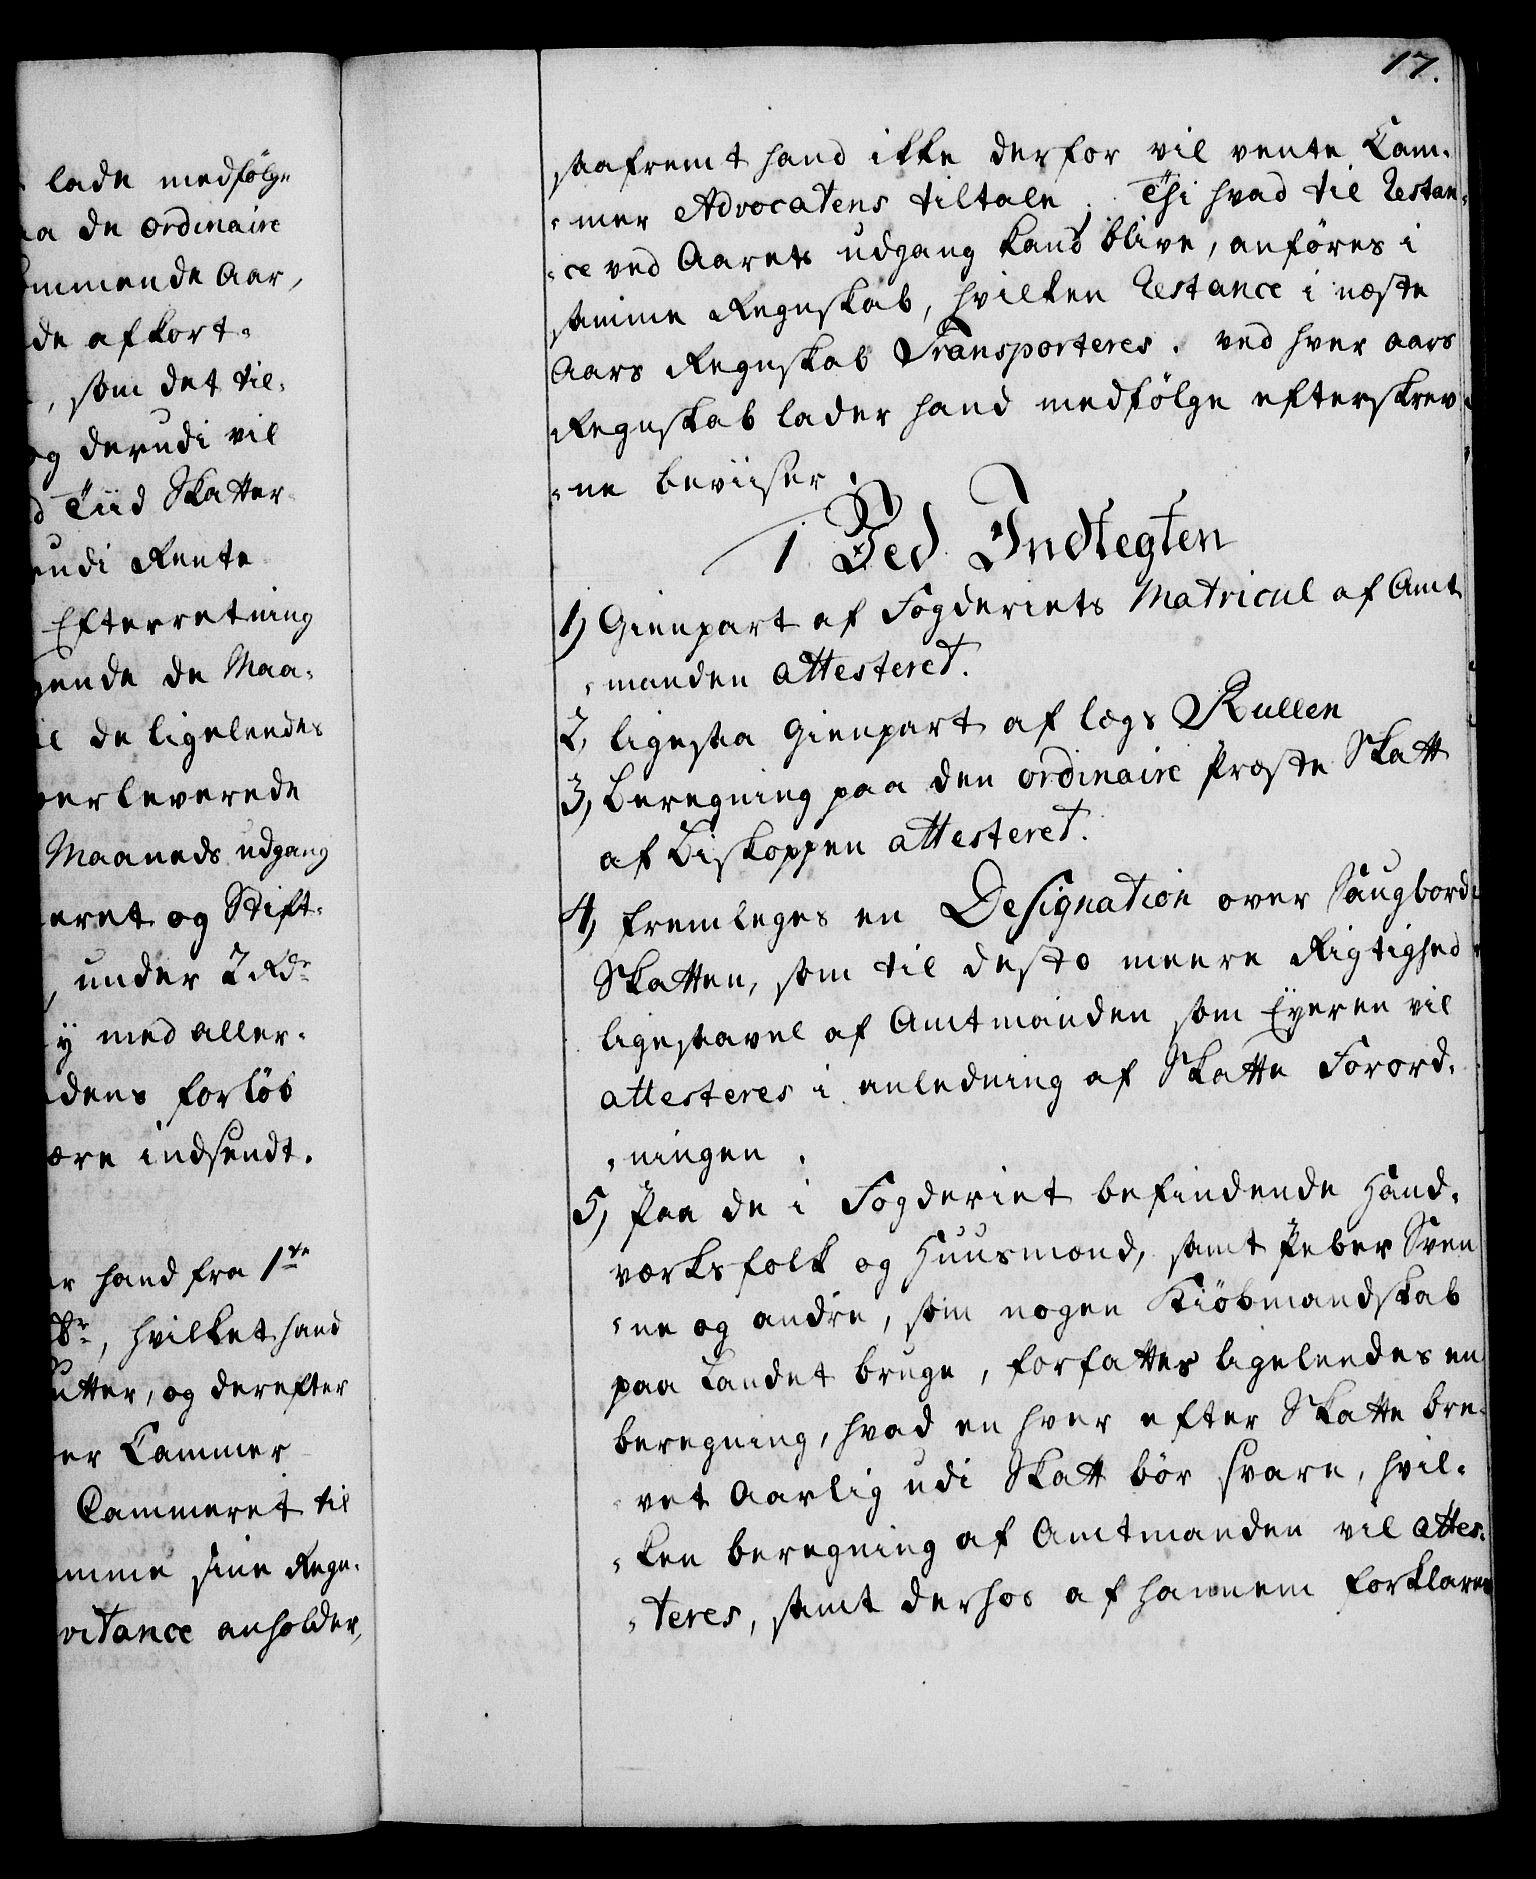 lade medfølge
aa de ordinaire
ommende Aar,
de afkort-
, som det til-
og derudi vil
d Tiid Skatter-
udi Rente
Efterretning
gende de Maa-
il de ligeleedes
verleverede
Maaneds udgang
eret og Stift-
, under 2 Rdr
y med aller-
dens forløb
ære indsendt.
er hand fra 1ste
br, hvilket hand
utter, og derefter
er Cammer
Cammeret til
mme sine Regn-
vitance anholder,
17.
saafremt hand ikke derfor vil vente Cam-
-mer Advocatens tiltale. Thi hvad til Restan-
-ce ved Aarets udgang kand blive, anføres i
samme Regnskab, hvilken Restance i næste
Aars Regnskab Transporteres. ved hver aars
Regnskab lader hand medfølge efterskrev
-ne beviiser.
1 Ved Indtegten
1, Gienpart af Fogderiets Matricul af Amt
-manden attesteret.
2, ligesaa Gienpart af legs Rullen
3, Beregning paa den ordinaire Præste Skatt
af Biskoppen attesteret.
4, fremleges en Designation over Saugbord-
Skatten, som til desto meere Rigtighed
ligesaavel af Amtmanden som Eyeren vil
attesteres i anledning af Skatte Forord-
-ningen.
5, Paa de i Fogderiet befindende Hand-
værksfolk og Huusmænd, samt Peber Sven
-ne og andre, som nogen Kiøbmandskab
paa Landet bruge, forfattes ligeleedes en
beregning, hvad en hver efter Skatte bre-
-vet Aarlig udi Skatt bør svare, hvil-
-ken beregning af Amtmanden vil attes-
-teres, samt derhos af hannem forklares